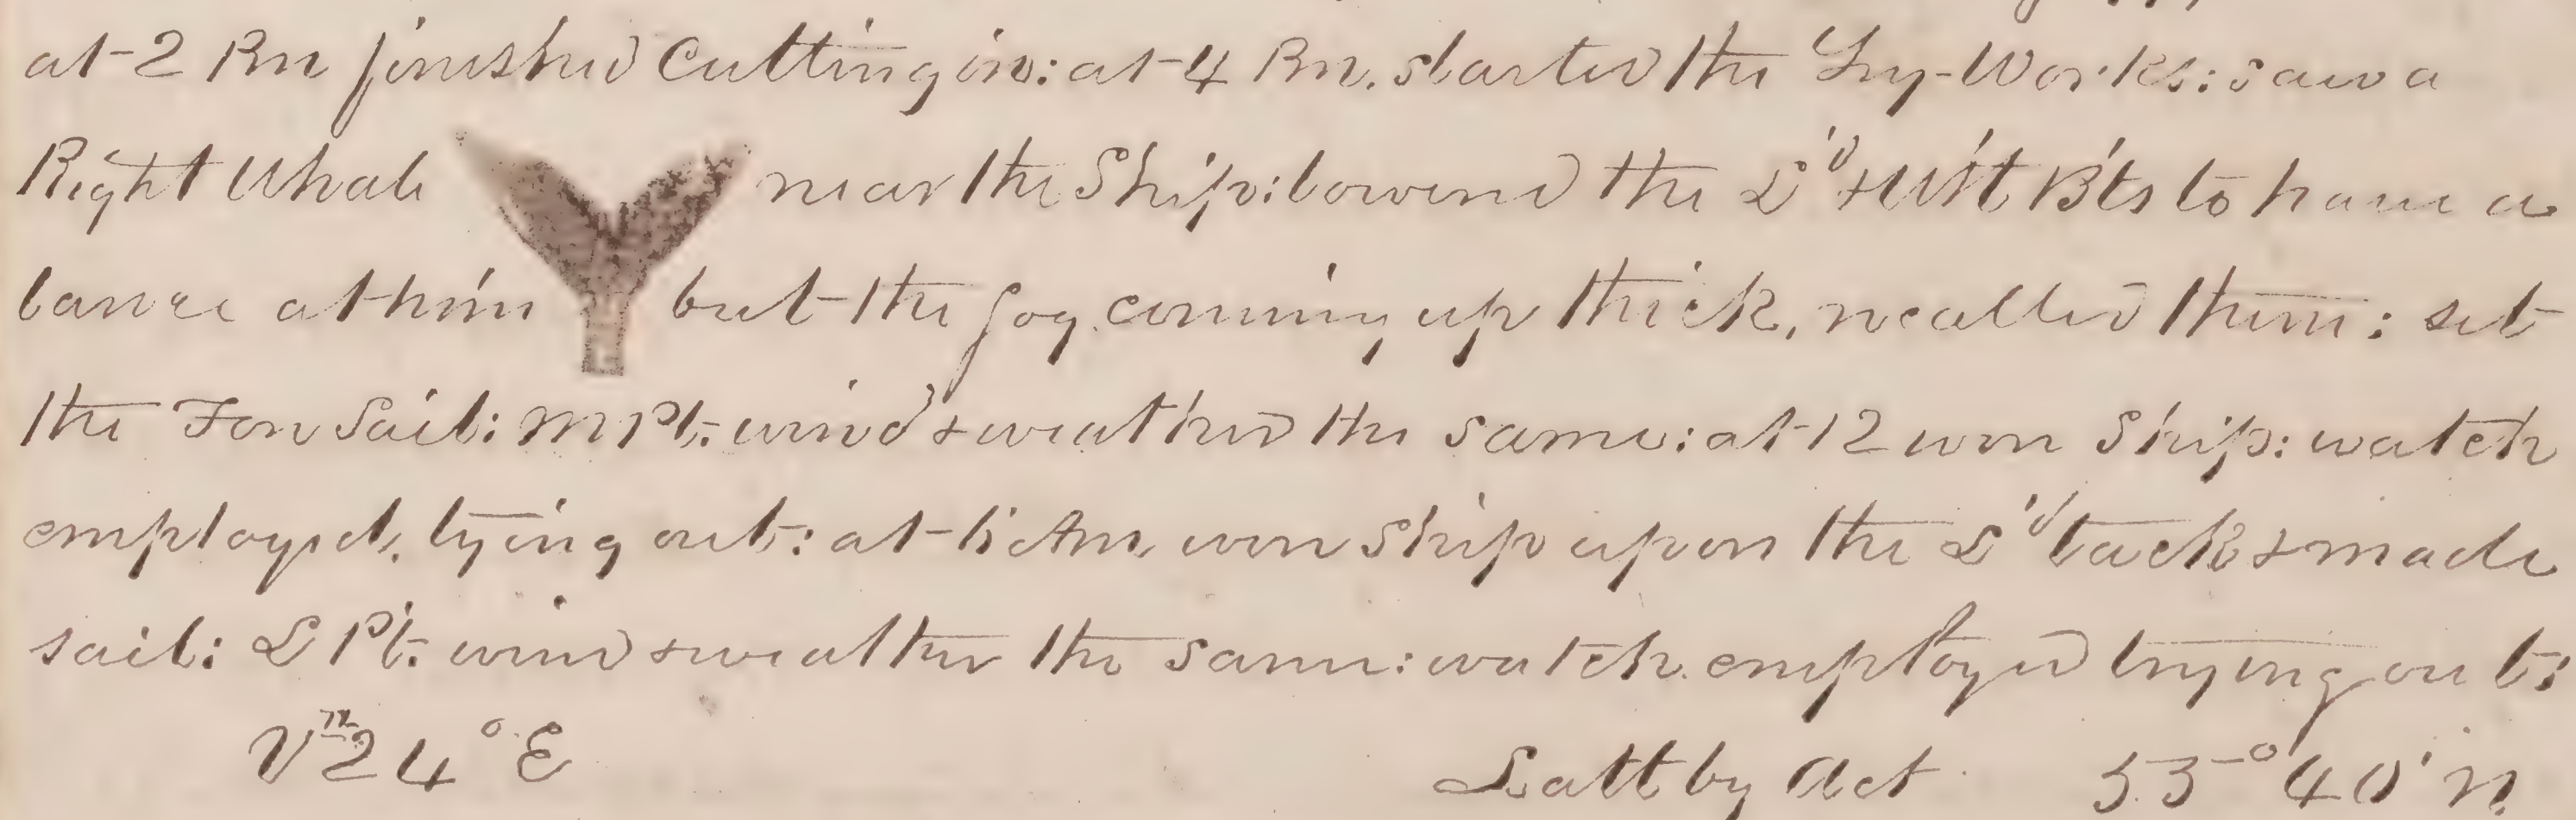 at 2 Pm finished Cutting in: at 4 Pm. started the Try-Works: saw a
Right Whale near the Ship: lowered the L'd & W'st B'ts to have a
lance at him but the fog coming up thick, recalled them: set
the Fore Sail: M Pt. wind & weather the same: at 12 wore Ship: watch
employed, trying out: at Am. wore Ship upon the L'd tack & made
sail: L Pt. wind & weather the same: watch employed trying out:
Vn 24° E Latt by Act 53° 40' N.